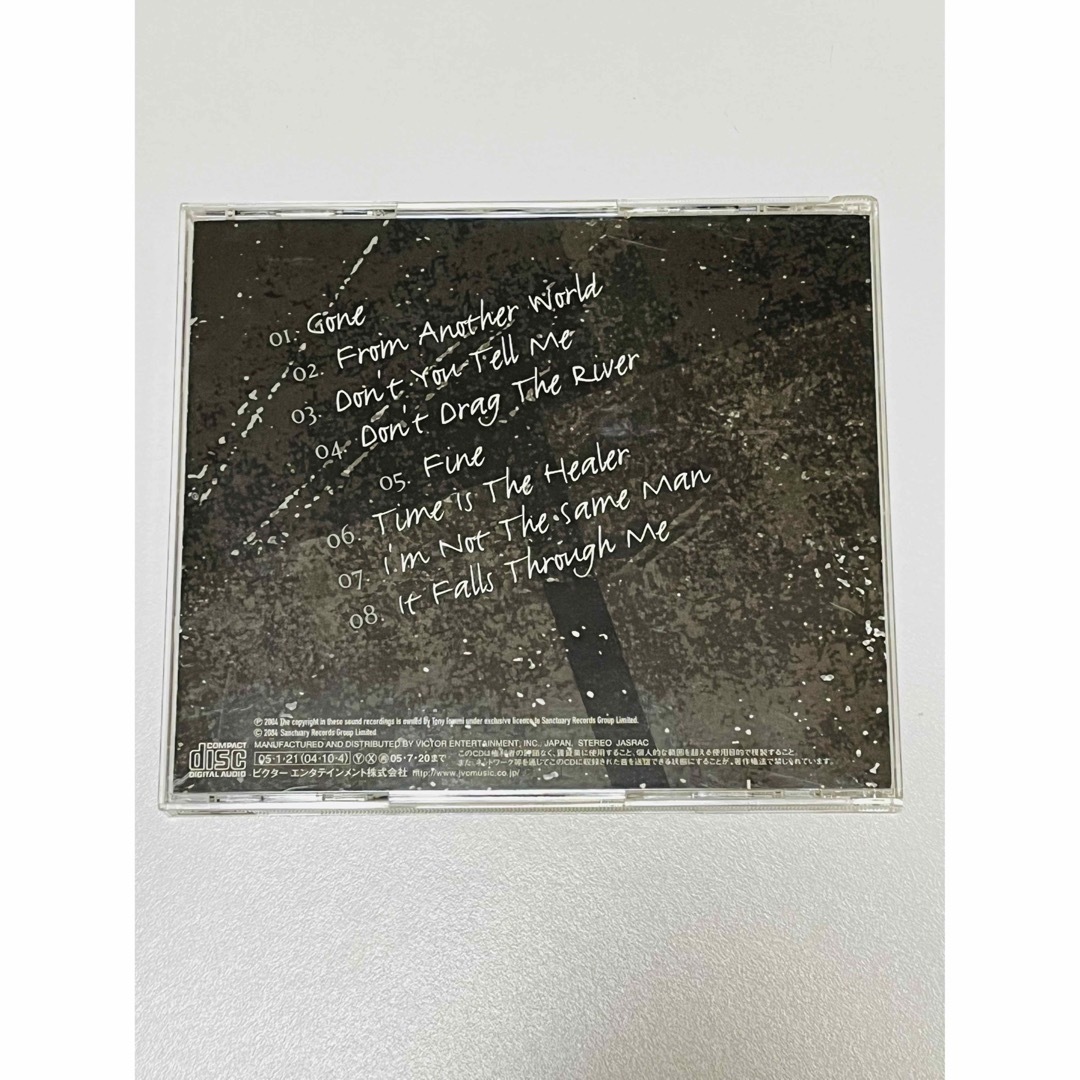 01. Gone
02. From Another World
03. Don't You Tell Me
04. Don't Drag The River
05. Fine
06. Time Is The Healer
07. i.m Not The Same Man
08. It Falls Through Me
℗ 2004 The copyright in these sound recordings is owned by Tony Iommi under exclusive licence to Sanctuary Records Group Limited.
© 2004 Sanctuary Records Group Limited.
COMPACT
disc
DIGITAL AUDIO
MANUFACTURED AND DISTRIBUTED BY VICTOR ENTERTAINMENT, INC., JAPAN, STEREO JASRAC
05・1・21(04・10・4) Ⓨ Ⓧ 再 05・7・20まで
このCDは権利者の許諾なく、賃貸業に使用すること、個人的な範囲を超える使用目的で複製すること、
また、ネットワーク等を通じてこのCDに収録された音を送信できる状態にすることが、著作権法で禁じられています。
ビクター エンタテインメント株式会社 http://www.jvcmusic.co.jp/